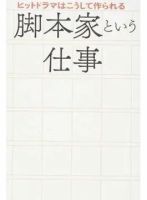 ヒットドラマはこうして作られる
脚本家という
仕事